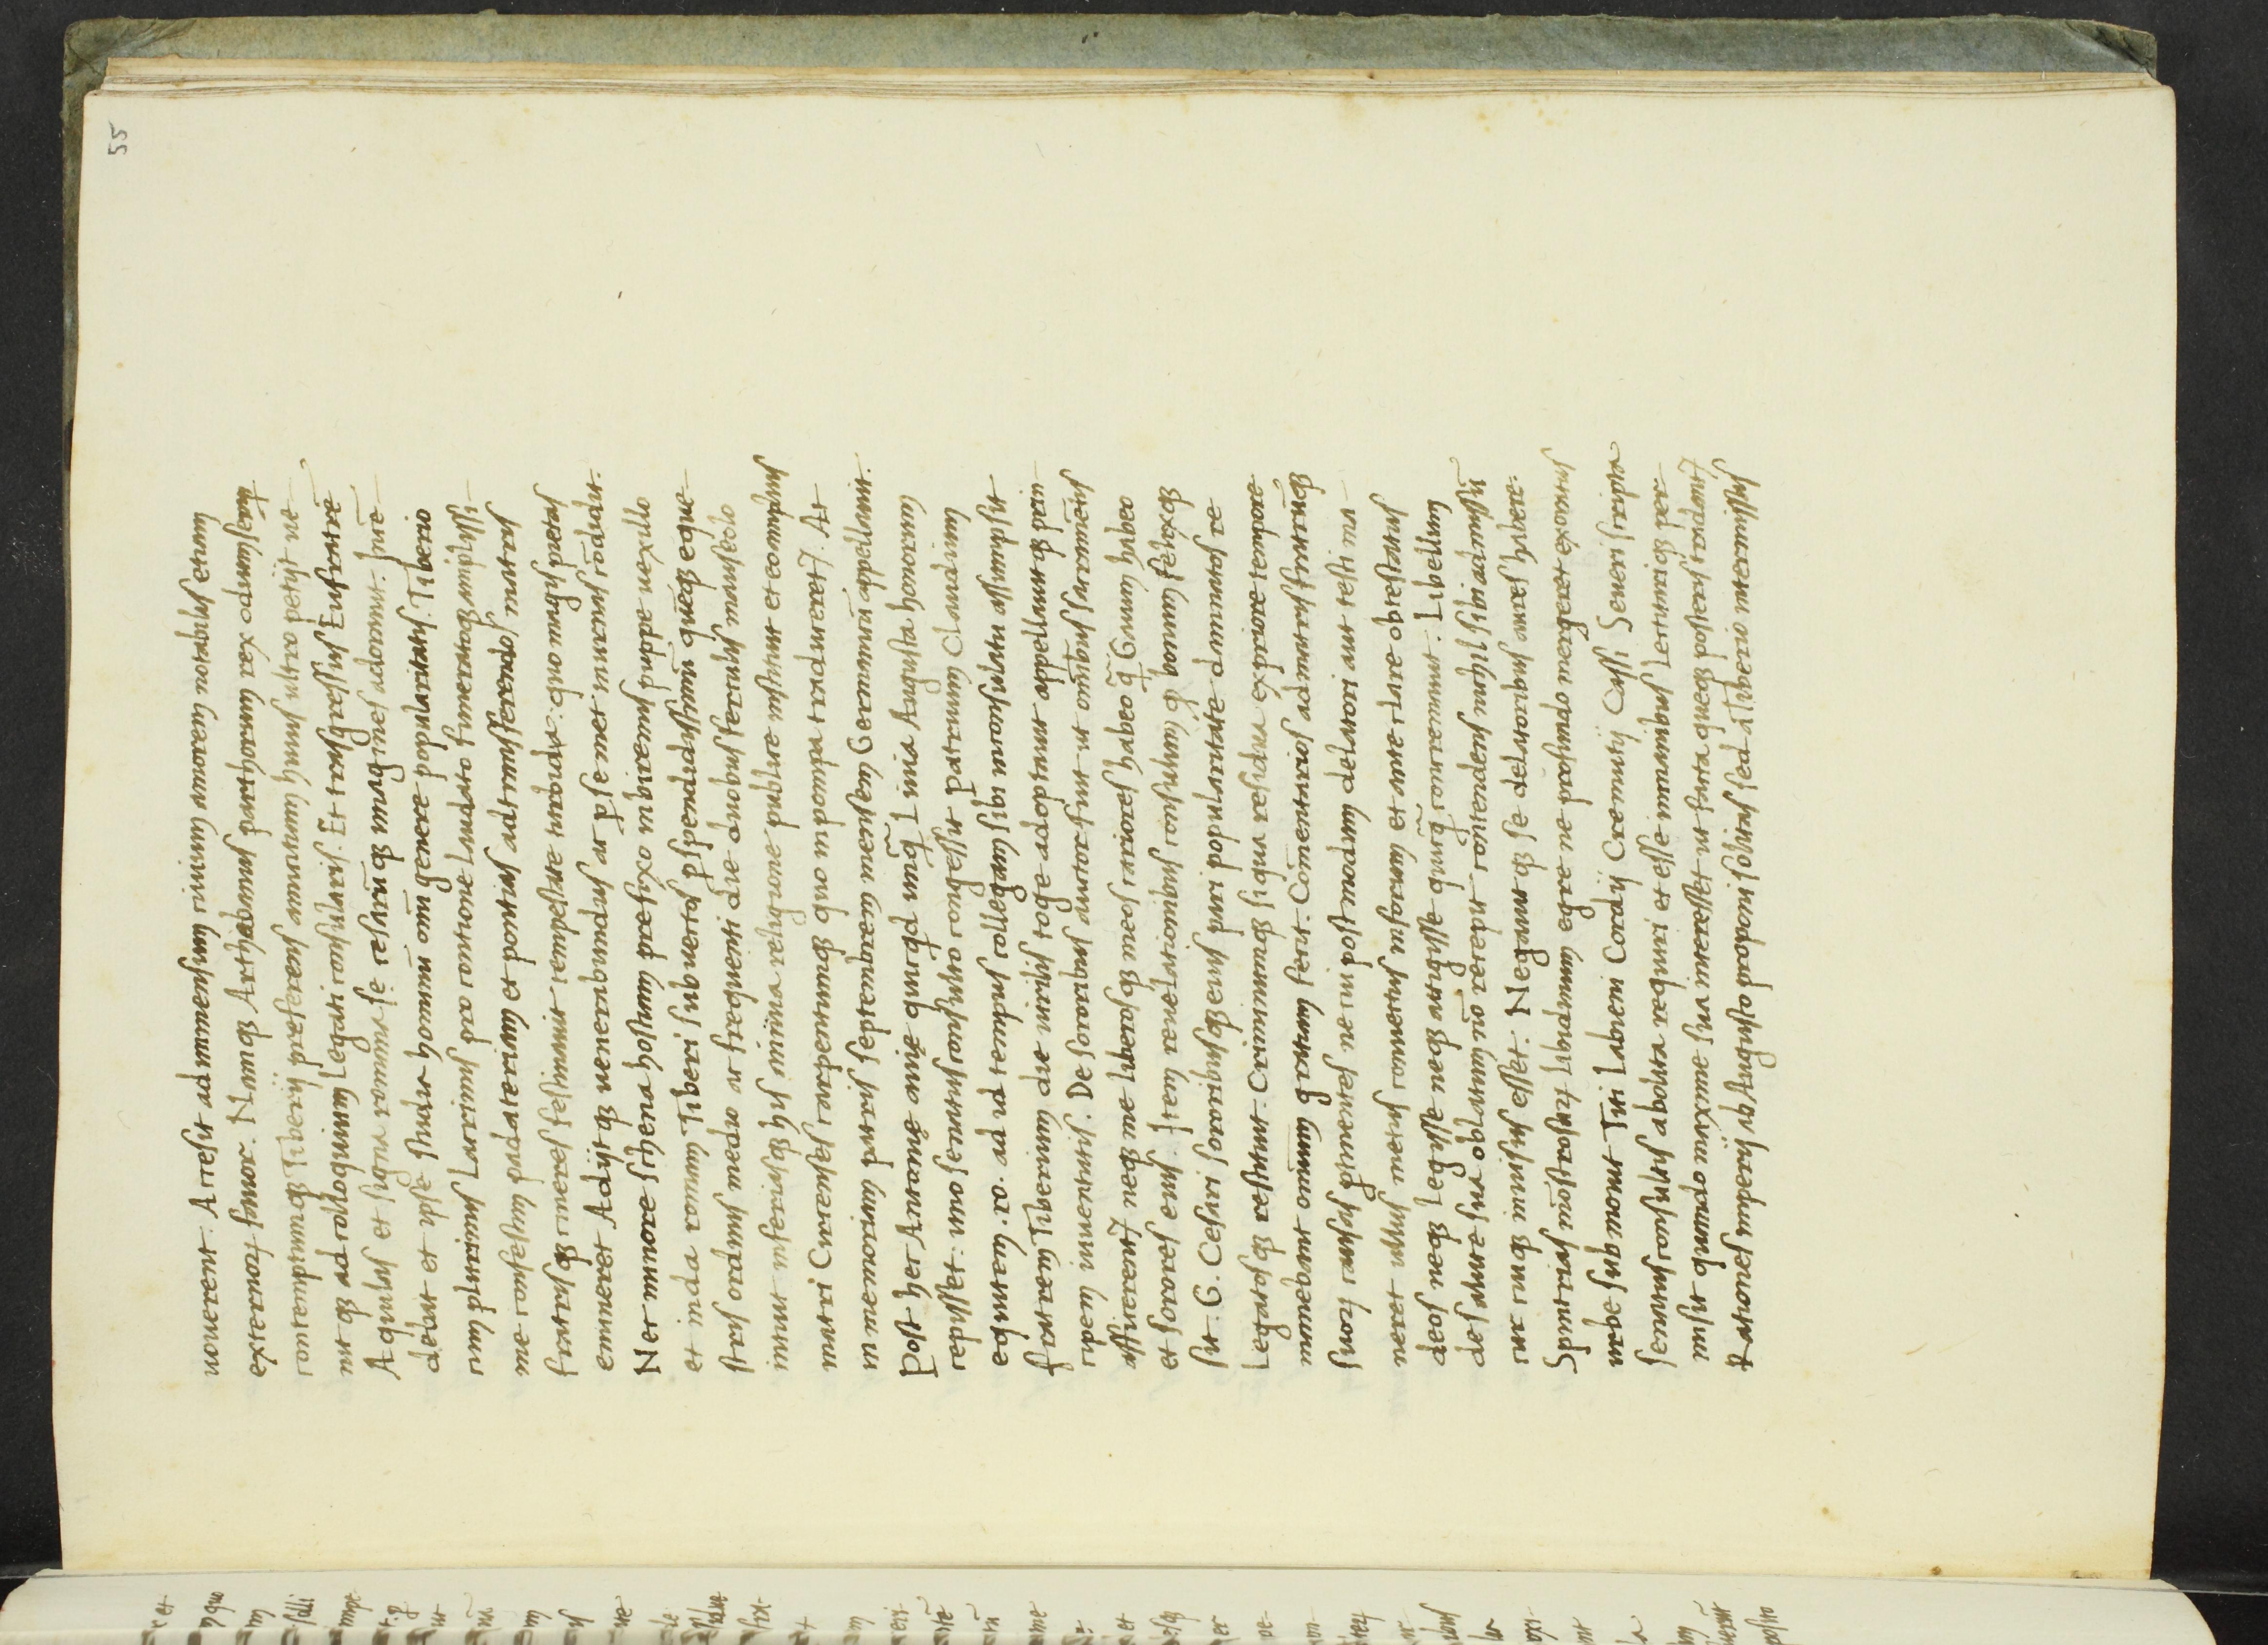 55
uouerent. Accessit ad immensum ciuium amorem notabilis etiam
externoꝝ fauor. Namqꝫ Arthabanus parthorum rex odium semꝑ
contemptumqꝫ Tiberij preferens amicitiam huius ultro petijt ue
nit qꝫ ad colloquium legati consularis. Et transgressus Eufratrē
Aquilas et signa romana se. cesarūqꝫ imagines adorauit. Incē
debat et ipse studia hominū omī genere popularitatis. Tiberio
cum plurimis lacrimis pro contione laudato funeratoqꝫ amplissi
me confestim padateriam et pontias ad transferendos matris
fratrisqꝫ cineres festinauit tempestate turbida. quo magis pietas
emineret Adijtqꝫ uenerabundus ac ꝑ semet in urnas cōdidit.
Nec minore schena hostium prefixo in biremis puppe uexillo
et inda romam Tiberi subuectos ꝑ splendidissimū quēqꝫ eque
stris ordinis medio ac frequenti die duobus ferculis mauseolo
intulit inferiasqꝫ his annua religione publice instituit et eo amplius
matri Circenses carpentumqꝫ quo in pompa traduceretꝛ. At
in memoriam patris septembrem mensem Germanicū appellauit.
Post hec Antonię auię quicqd unq̄ Liuia Augusta honorum
cepisset. uno senatus consulto congessit patruum Claudium
equitem .ro. ad id tempus collegam sibi in consulatu assumpsit
fratrem Tiberium die uirilis toge adoptauit appellauitqꝫ prin
cipem iuuentutis. De sororibus auctor fuit ut omībus sacramētis
afficerentꝛ neqꝫ me liberosqꝫ meos cariores habeo q̄ Gaium habeo
et sorores eius. Item reuelationibus consulum qd bonum felixqꝫ
sit. G. Cesari sororibusqꝫ eius pari popularitate damnatos re
legatosqꝫ restituit. Criminumqꝫ siqua residua ex priore tempore
manebant omnium gratiam fecit. Comētarios ad matris fratrūqꝫ
suoꝝ causas ꝑtinentes ne cui postmodum delatori aut testi ma
neret ullus metus conuectus in forum et ante clare obtestatus
deos neqꝫ legisse neqꝫ attigisse quicq̄ concremauit. Libellum
de salute sua oblatum nō recepit cōntendens nichil sibi admissū
cur cuiqꝫ inuisus esset. Negauitqꝫ se delatoribus aures habere.
Spintrias mōstrosaꝝ libidinum egre ne profundo mergeret exoratus
urbe submouit Titi Labieni Cordij Cremutij Cassi Seueri scripta
senatus consultis abolita requiri et esse in manibus lectitariqꝫ per
misit quando maxime sua interesset ut facta queqꝫ posteris tradantꝛ
Rationes imperij ab Augusto proponi solitas sed a Tiberio intermissas